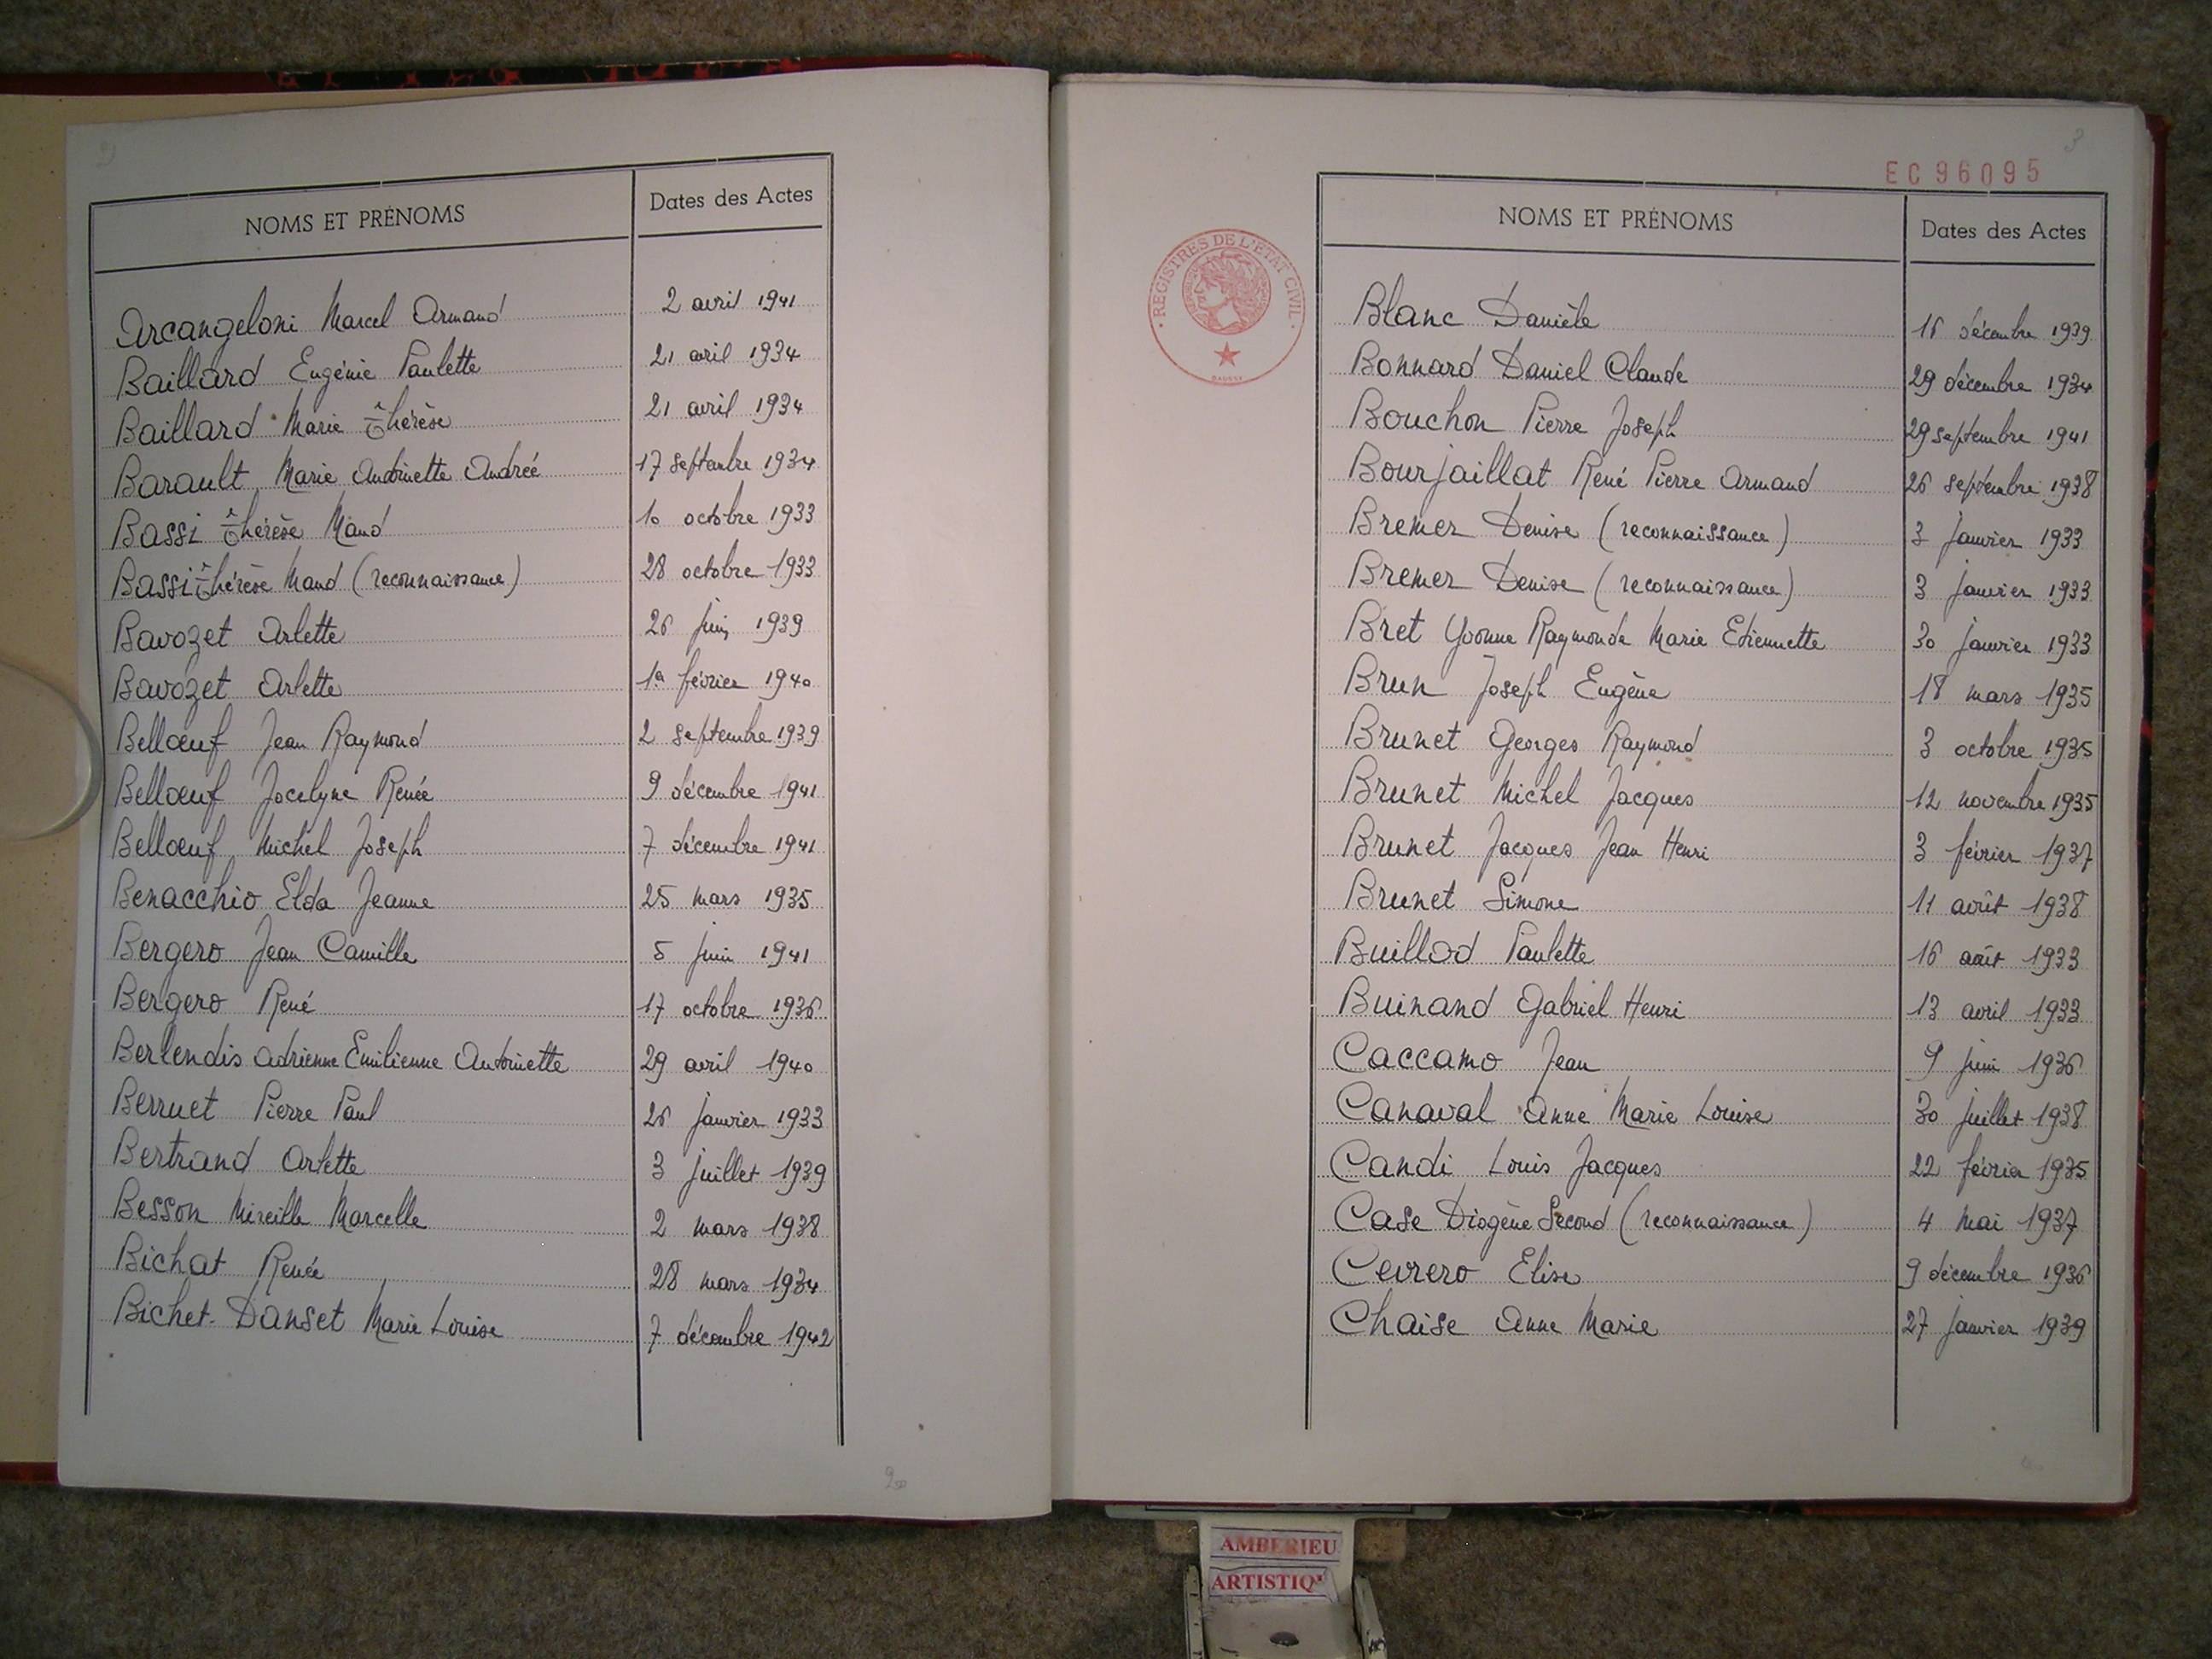 2
NOMS ET PRÉNOMS Dates des Actes
Arcangeloni Marcel Armand 2 avril 1941
Baillard Eugénie Paulette 21 avril 1934
Baillard Marie Thérèse 21 avril 1934
Barault Marie Antoinette Andrée 17 septembre 1934
Bassi Thérèse Maud 10 octobre 1933
Bassi Thérèse Maud (reconnaissance) 28 octobre 1933
Bavozet Arlette 26 juin 1939
Bavozet Arlette février 1940
Bellœuf Jean Raymond 2 septembre 1939
Bellœuf Jocelyne Renée 9 décembre 1941
Bellœuf Michel Joseph 7 décembre 1941
Benacchio Elda Jeanne 25 mars 1935
Bergero Jean Camille 5 juin 1941
Bergero René 17 octobre 1936
Berlendis Adrienne Emilienne Antoinette 29 avril 1940
Berruet Pierre Paul 26 janvier 1933
Bertrand Arlette 3 juillet 1939
Besson Mireille Marcelle 2 mars 1938
Bichat Renée 28 mars 1934
Bichet-Danset Marie Louise 7 décembre 1942
3
EC96095
REGISTRES DE L'ETAT CIVIL
NOMS ET PRÉNOMS Dates des Actes
Blanc Danièle décembre 1939
Bonnard Daniel Claude 29 décembre 1934
Bouchon Pierre Joseph 29 septembre 1941
Bourjaillat René Pierre Armand 26 septembre 1938
Bremer Denise (reconnaissance) 3 janvier 1933
Bremer Denise (reconnaissance) 3 janvier 1933
Bret Yvonne Raymonde Marie Etiennette 30 janvier 1933
Brun Joseph Eugène 18 mars 1935
Brunet Georges Raymond 3 octobre 1935
Brunet Michel Jacques 12 novembre 1935
Brunet Jacques Jean Henri 3 février 1937
Brunet Simone 11 août 1938
Buillod Paulette 16 août 1933
Buinand Gabriel Henri 13 avril 1933
Caccamo Jean 9 juin 1936
Canaval Anne Marie Louise 30 juillet 1938
Candi Louis Jacques 22 février 1935
Case Diogène Second (reconnaissance) 4 mai 1937
Cevrero Elise 9 décembre 1936
Chaise Anne Marie 27 janvier 1939
AMBERIEU
ARTISTIQ